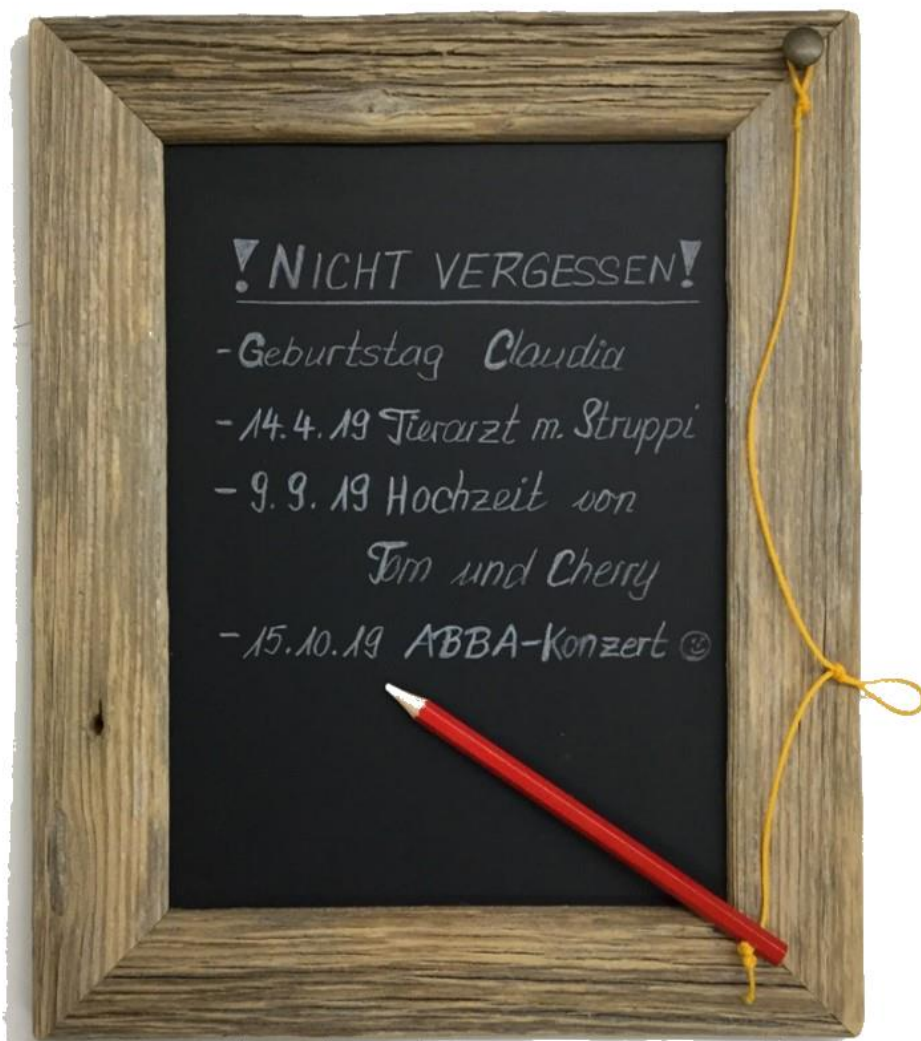 ! NICHT VERGESSEN!
- Geburtstag Claudia
- 14.4.19 Tierarzt m. Struppi
- 9.9.19 Hochzeit von
Tom und Cherry
- 15.10.19 ABBA-Konzert ☺